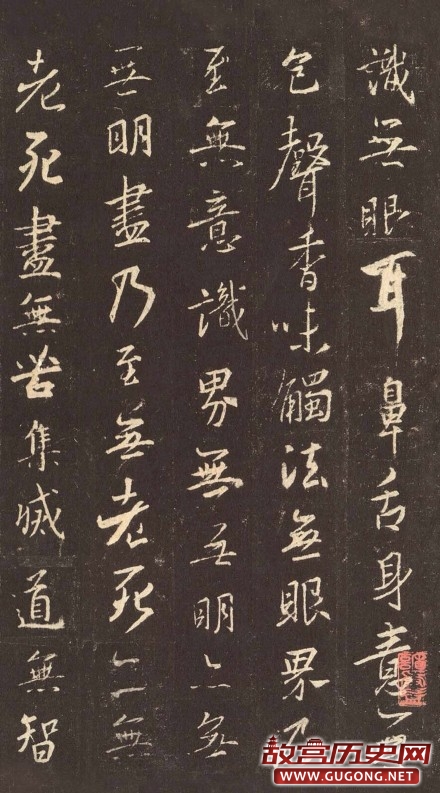 識無眼耳鼻舌身意無
色聲香味觸法無眼界乃
至無意識界無無明亦無
無明盡乃至無老死亦無
老死盡無苦集滅道無智
故宫历史网
WWW.GUGONG.NET